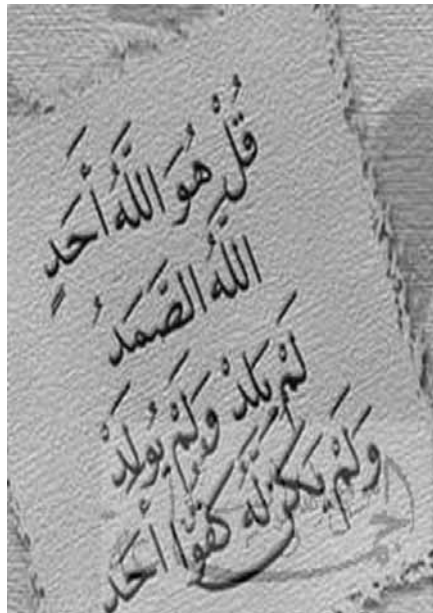 قُلْ هُوَ اللَّهُ أَحَدٍ
اللَّهُ الصَّمَدُ
لَمْ يَلَدْ وَلَمْ يُولَدْ
وَلَمْ يَكُنْ لَّهُ كَفُوًا أَحَد